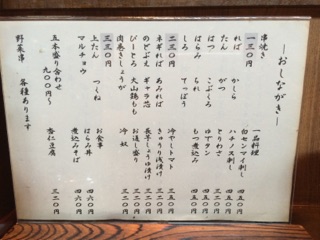 ―おしながき―
串焼き
一三〇円
れば　かしら
たん　がつ
はつ　こぶくろ
はらみ　ちれ
しろ　てっぽう
二三〇円
ネギればぁ　あみれば
のどぶえ　ギャラ芯
ぴーとろ　大山鶏もも
肉巻きしょうが
三三〇円
上たん　つくね
マルチョウ
五本盛り合わせ
九〇〇円～
野菜串　各種あります
一品料理
白センマイ刺し　四五〇円
ハチノス刺し　四五〇円
とりわさ　四五〇円
ゆでタン　四五〇円
もつ煮込み　四五〇円
冷やしトマト　三二〇円
きゅうり浅漬け　三二〇円
長芋しょうゆ漬け　三二〇円
お通し盛り　三二〇円
冷奴　三二〇円
お食事
はらみ丼　四六〇円
煮込みそば　四六〇円
杏仁豆腐　三二〇円